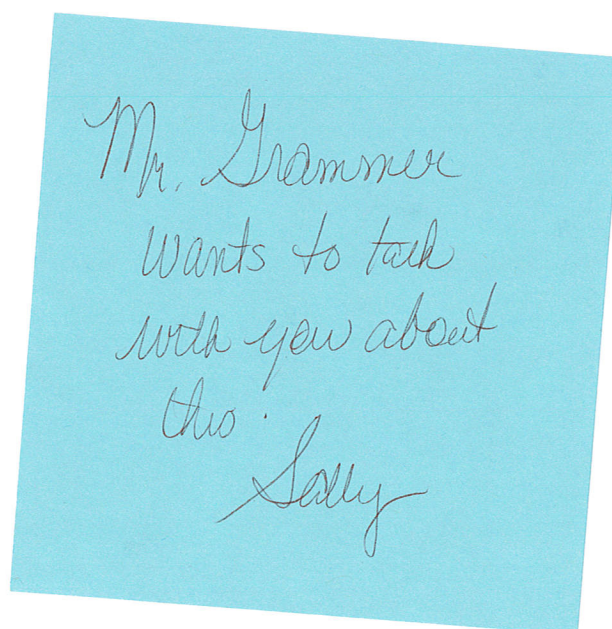 Mr. Grammer
wants to talk
with you about
this.
Sally